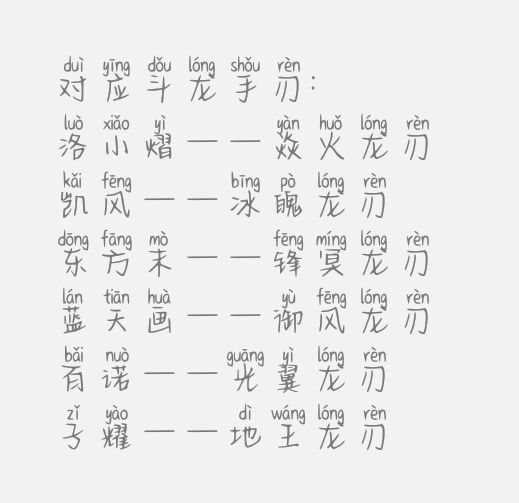 duì yīng dǒu lóng shǒu rèn
对应斗龙手刃：
luò xiǎo yì yàn huǒ lóng rèn
洛小熠——焱火龙刃
kǎi fēng bīng pò lóng rèn
凯风——冰魄龙刃
dōng fāng mò fēng míng lóng rèn
东方末——锋冥龙刃
lán tiān huà yù fēng lóng rèn
蓝天画——御风龙刃
bǎi nuò guāng yì lóng rèn
百诺——光翼龙刃
zǐ yào dì wáng lóng rèn
子耀——地王龙刃